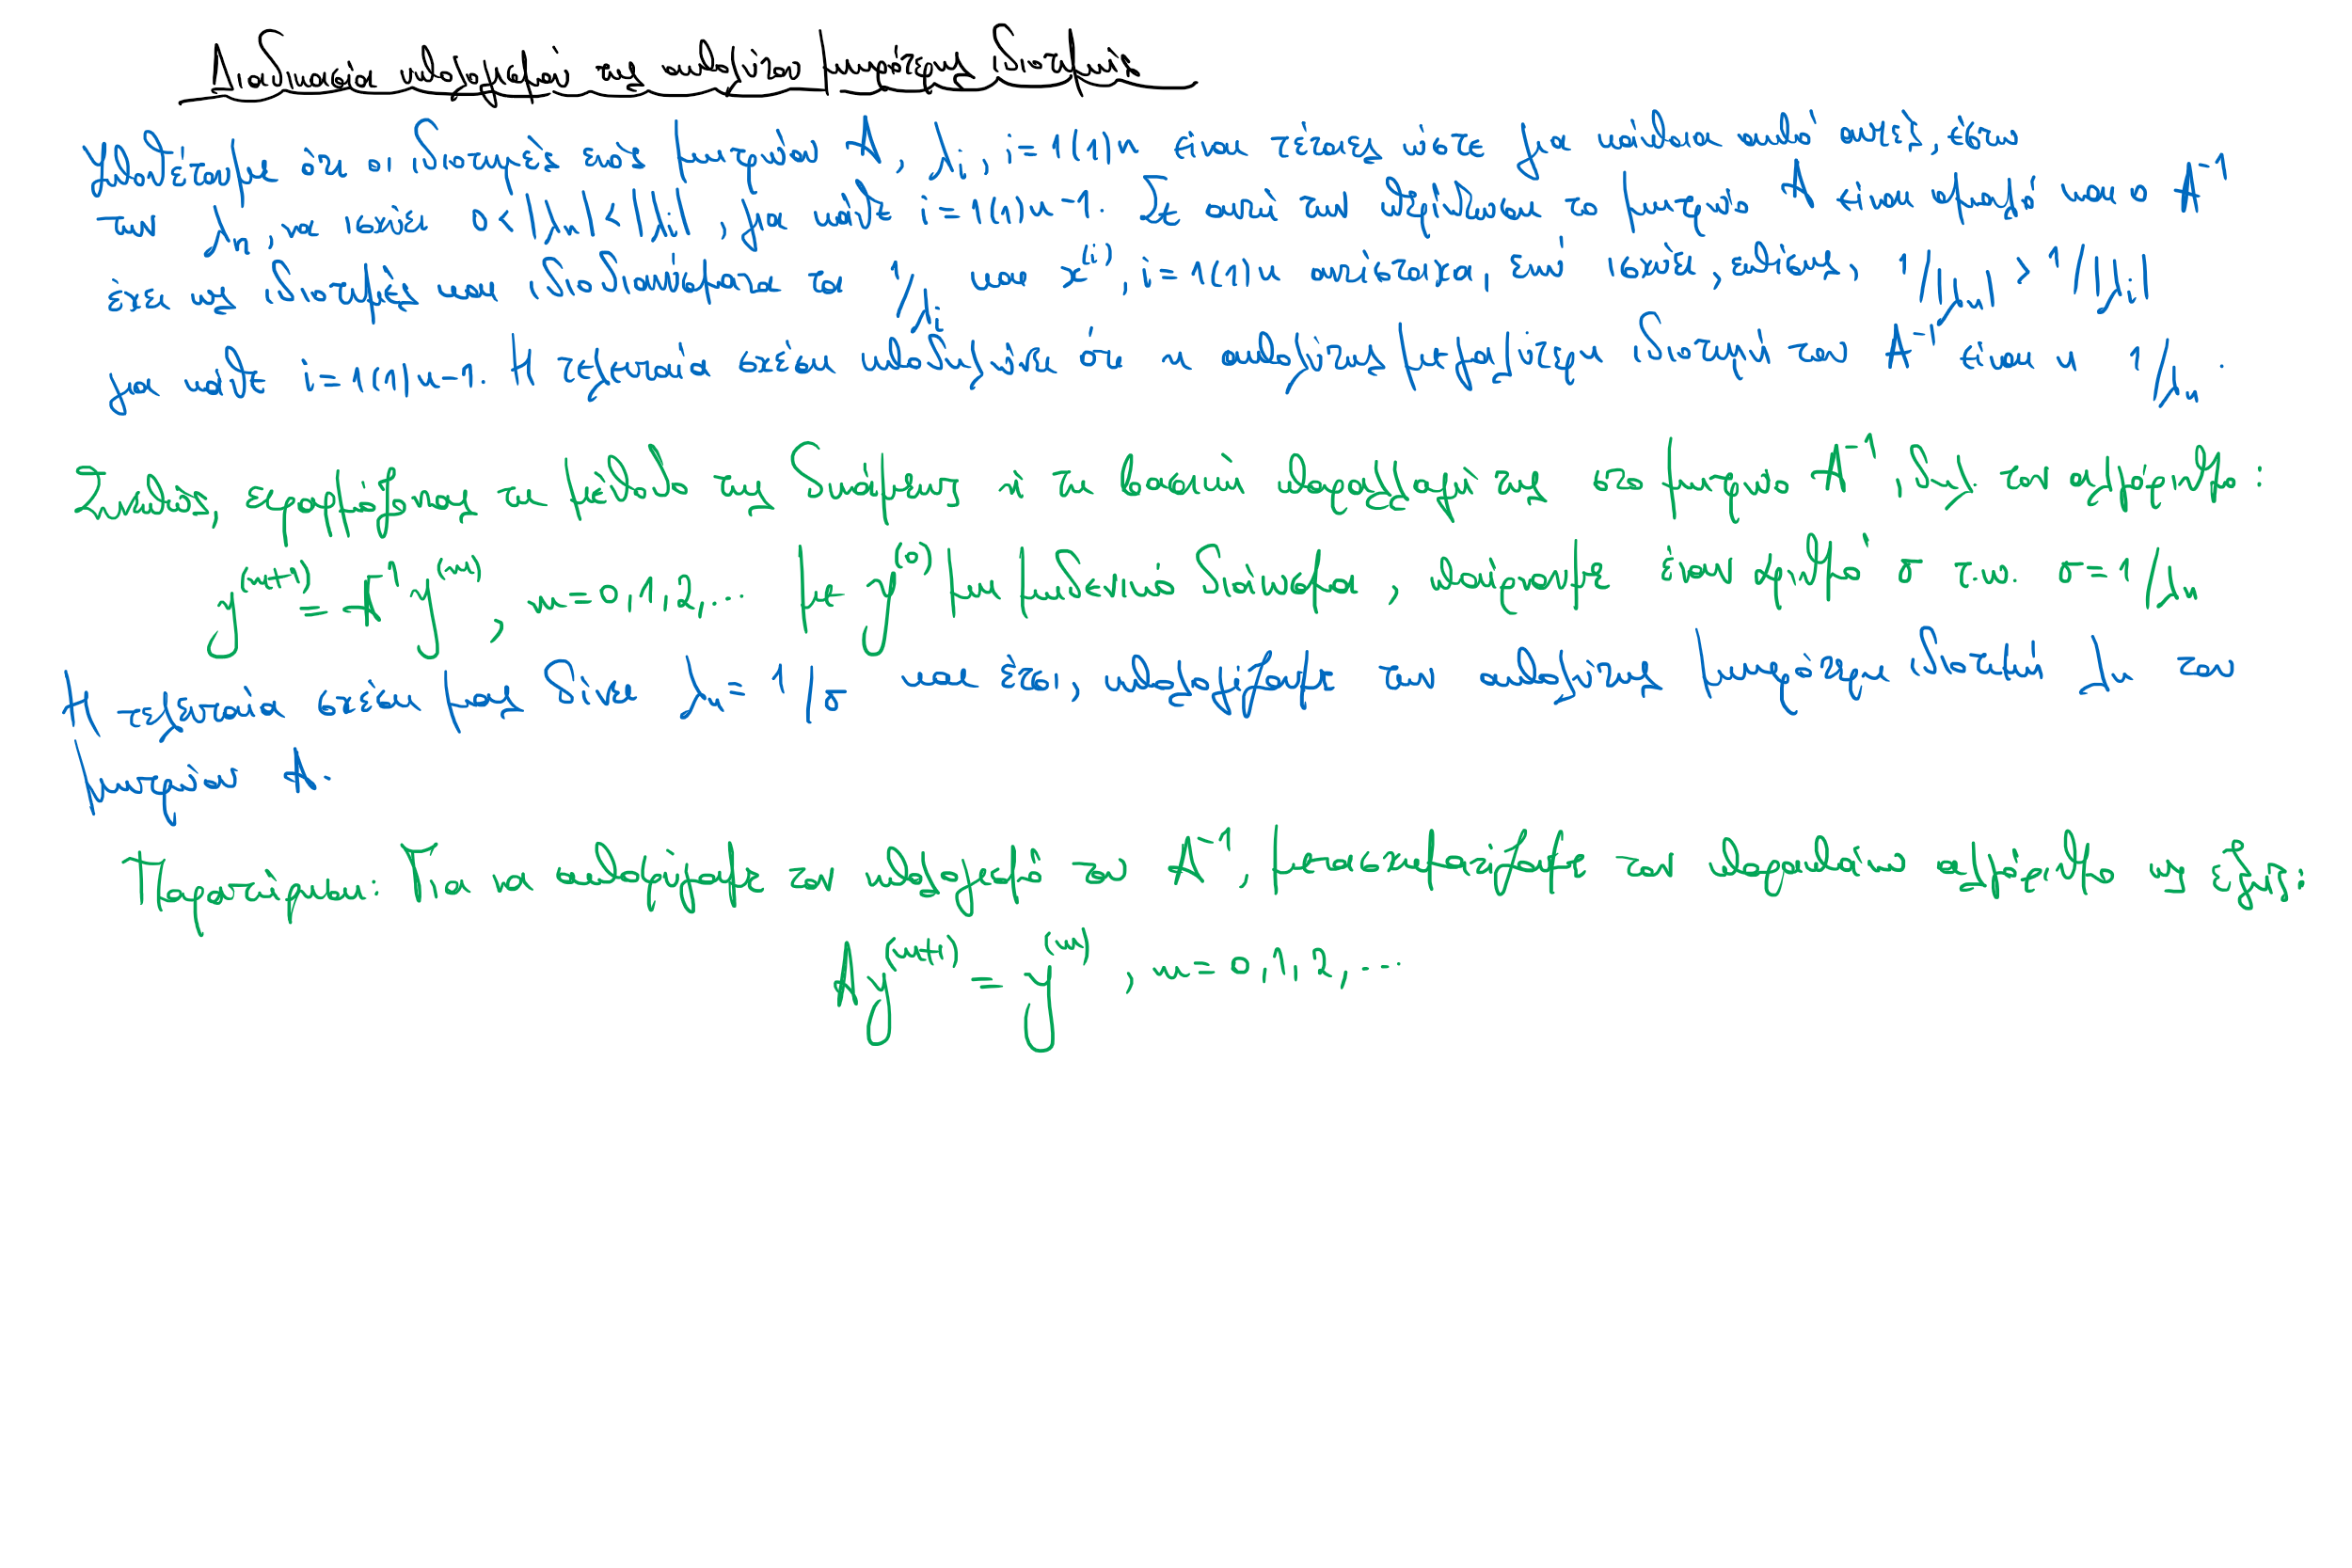 Διαδικασία υπολογισμού της απολύτου μικρότερης ιδιοτιμής
Υποθέτουμε ότι οι ιδιοτιμές ενός μητρώου A, λᵢ, i=1(1)n είναι τέτοιες ώστε για κάποια από αυτές, έστω
την λₙ, να ισχύει 0<|λₙ|<|λᵢ|, για κάθε i=1(1)n-1. Σε αυτή την περίπτωση το μητρώο A είναι ομαλό και ο A⁻¹
έχει ως ιδιοτιμές και ιδιοδιανύσματα τα 1/λᵢ και x⁽ⁱ⁾, i=1(1)n αντίστοιχα, ενώ ισχύει, επίσης, 1/|λₙ| > 1/|λᵢ|
για κάθε i=1(1)n-1. Η τελευταία σχέση υποδηλώνει ότι η απολύτως μεγαλύτερη ιδιοτιμή του A⁻¹ είναι η 1/λₙ.
Συνεπώς, εφαρμόζοντας τη μέθοδο της δυνάμεως ή τη βασική παραλλαγή της στο μητρώο A⁻¹, δηλ. τον αλγόριθμο:
y⁽ᵐ⁺¹⁾ = A⁻¹y⁽ᵐ⁾, m=0,1,2,... με y⁽⁰⁾ μη μηδενικό διάνυσμα, παίρνουμε έναν αριθμό σ τ.ω. σ=1/λₙ
Η τελευταία σχέση μας δίνει λₙ=1/σ και έτσι, υπολογίζουμε την απολύτως μικρότερη ιδιοτιμή λₙ του
μητρώου A.
Παρατήρηση: Για να αποφύγουμε τον υπολογισμό του A⁻¹, μετασχηματίζουμε τον παραπάνω αλγόριθμο ως εξής:
Ay⁽ᵐ⁺¹⁾ = y⁽ᵐ⁾, m=0,1,2,...